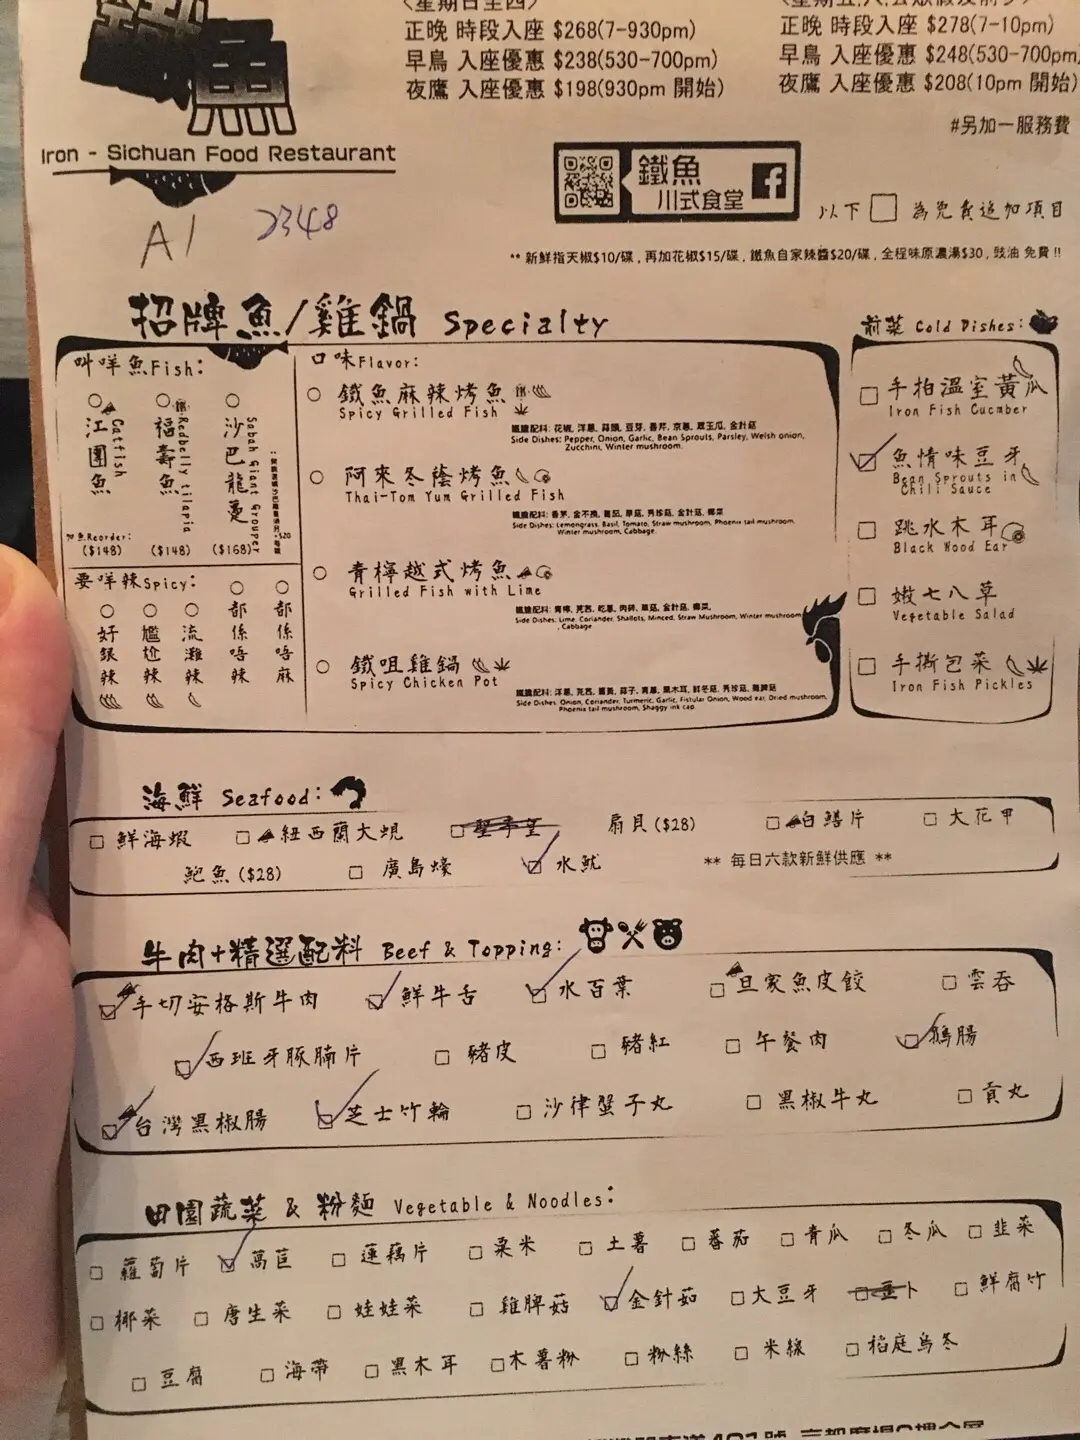 正晚 時段入座 $268(7-930pm)
早鳥 入座優惠 $238(530-700pm)
夜鷹 入座優惠 $198(930pm 開始)
正晚 時段入座 $278(7-10pm)
早鳥 入座優惠 $248(530-700pm
夜鷹 入座優惠 $208(10pm 開始)
#另加一服務費
魚
Iron - Sichuan Food Restaurant
鐵魚
川式食堂
f
以下 □ 為免費追加項目
A1 2348
** 新鮮指天椒$10/碟 , 再加花椒$15/碟 , 鐵魚自家辣醬$20/碟 , 全程味原濃湯$30 , 豉油 免費 !!
招牌魚/雞鍋 Specialty
叫咩魚Fish:
江團魚 Catfish
福壽魚 Redbelly tilapia
沙巴龍躉 Sabah Giant Grouper
加魚Reorder:
($148)
($148)
($168)
要咩辣Spicy:
好銀辣
尷尬辣
流灘辣
都係唔辣
都係唔麻
口味Flavor:
鐵魚麻辣烤魚
Spicy Grilled Fish
鐵膽配料: 花椒, 洋蔥, 蒜頭, 豆芽, 香芹, 京蔥, 翠玉瓜, 金針菇
Side Dishes: Pepper, Onion, Garlic, Bean Sprouts, Parsley, Welsh onion,
Zucchini, Winter mushroom.
阿來冬蔭烤魚
Thai-Tom Yum Grilled Fish
Side Dishes: Lemongrass, Basil, Tomato, Straw mushroom, Phoenix tail mushroom,
Winter mushroom, Cabbage.
青檸越式烤魚
Grilled Fish with Lime
Side Dishes: Lime, Coriander, Shallots, Minced, Straw Mushroom, Winter mushroom
, Cabbage
鐵咀雞鍋
Spicy Chicken Pot
Side Dishes: Onion, Coriander, Turmeric, Garlic, Fistular Onion, Wood ear, Dried mushroom,
Phoenix tail mushroom, Shaggy ink cap.
前菜 Cold Dishes:
手拍溫室黃瓜
Iron Fish Cucmber
魚情味豆牙
Bean Sprouts in
Chili Sauce
跳水木耳
Black Wood Ear
嫩七八草
Vegetable Salad
手撕包菜
Iron Fish Pickles
海鮮 Seafood:
鮮海蝦 紐西蘭大蜆 扇貝($28) 白鱔片 大花甲
鮑魚($28) 廣島蠔 水魷 ** 每日六款新鮮供應 **
牛肉+精選配料 Beef & Topping:
手切安格斯牛肉 鮮牛舌 水百葉 旦家魚皮餃 雲吞
西班牙豚腩片 豬皮 豬紅 午餐肉 鵝腸
台灣黑椒腸 芝士竹輪 沙律蟹子丸 黑椒牛丸 貢丸
田園蔬菜 & 粉麵 Vegetable & Noodles:
蘿蔔片 萵苣 蓮藕片 粟米 土薯 蕃茄 青瓜 冬瓜 韭菜
椰菜 唐生菜 娃娃菜 雞脾菇 金針茹 大豆牙 鮮腐竹
豆腐 海帶 黑木耳 木薯粉 粉絲 米線 稻庭烏冬